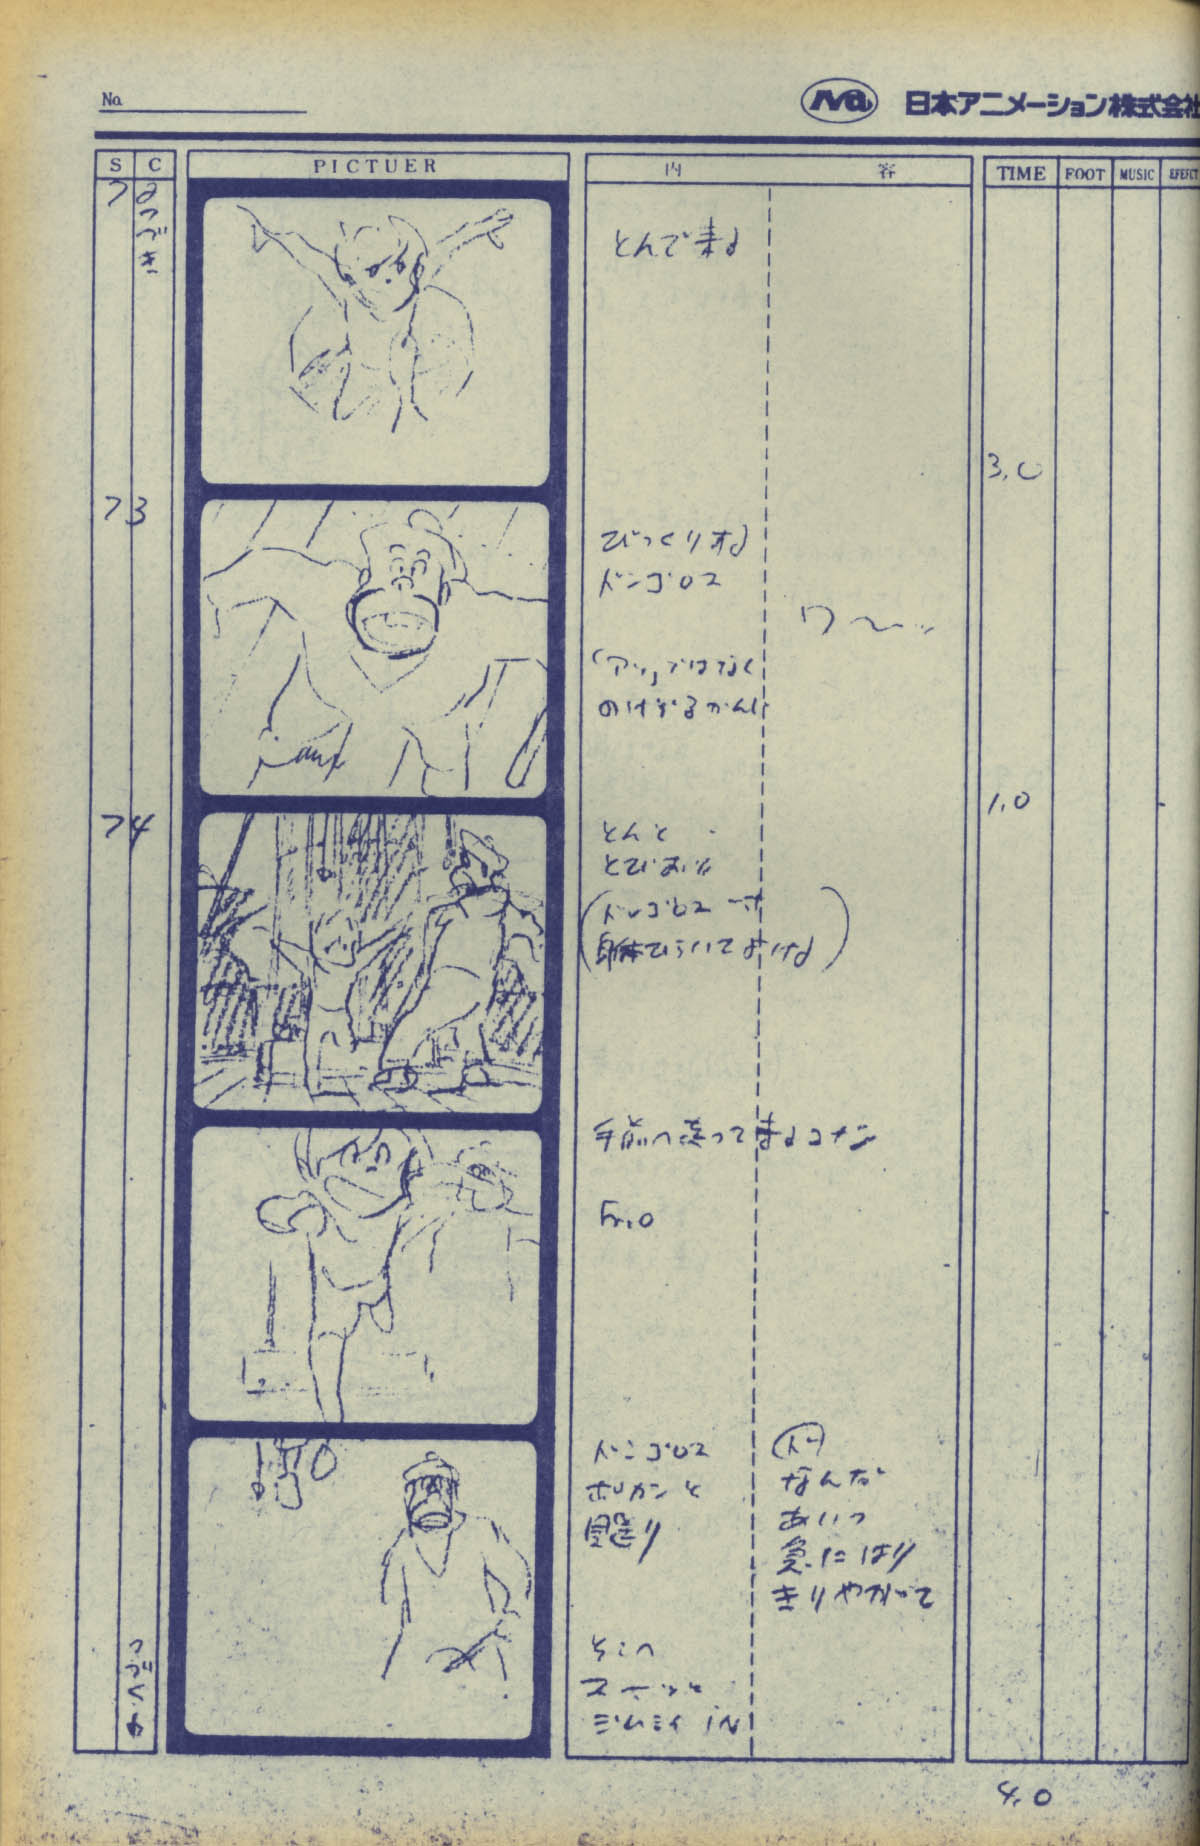 No.
Na 日本アニメーション株式会社
S C PICTUER 内 容 TIME FOOT MUSIC EFEFCT
72
つづき
とんで来る
3.0
73
びっくりする
ドンゴロス
ワ〜ッ
「アッ」ではなく
のけぞるかんじ
1.0
74
とんと
ドンゴロス
身体ひらいてよける
手前へ走って来るコナン
Fr.O
ドンゴロス
ポカンと
見送り
ド
なんだ
あいつ
急にはり
きりやがって
そこへ
スーッと
ジムシイ IN
つづく
4.0